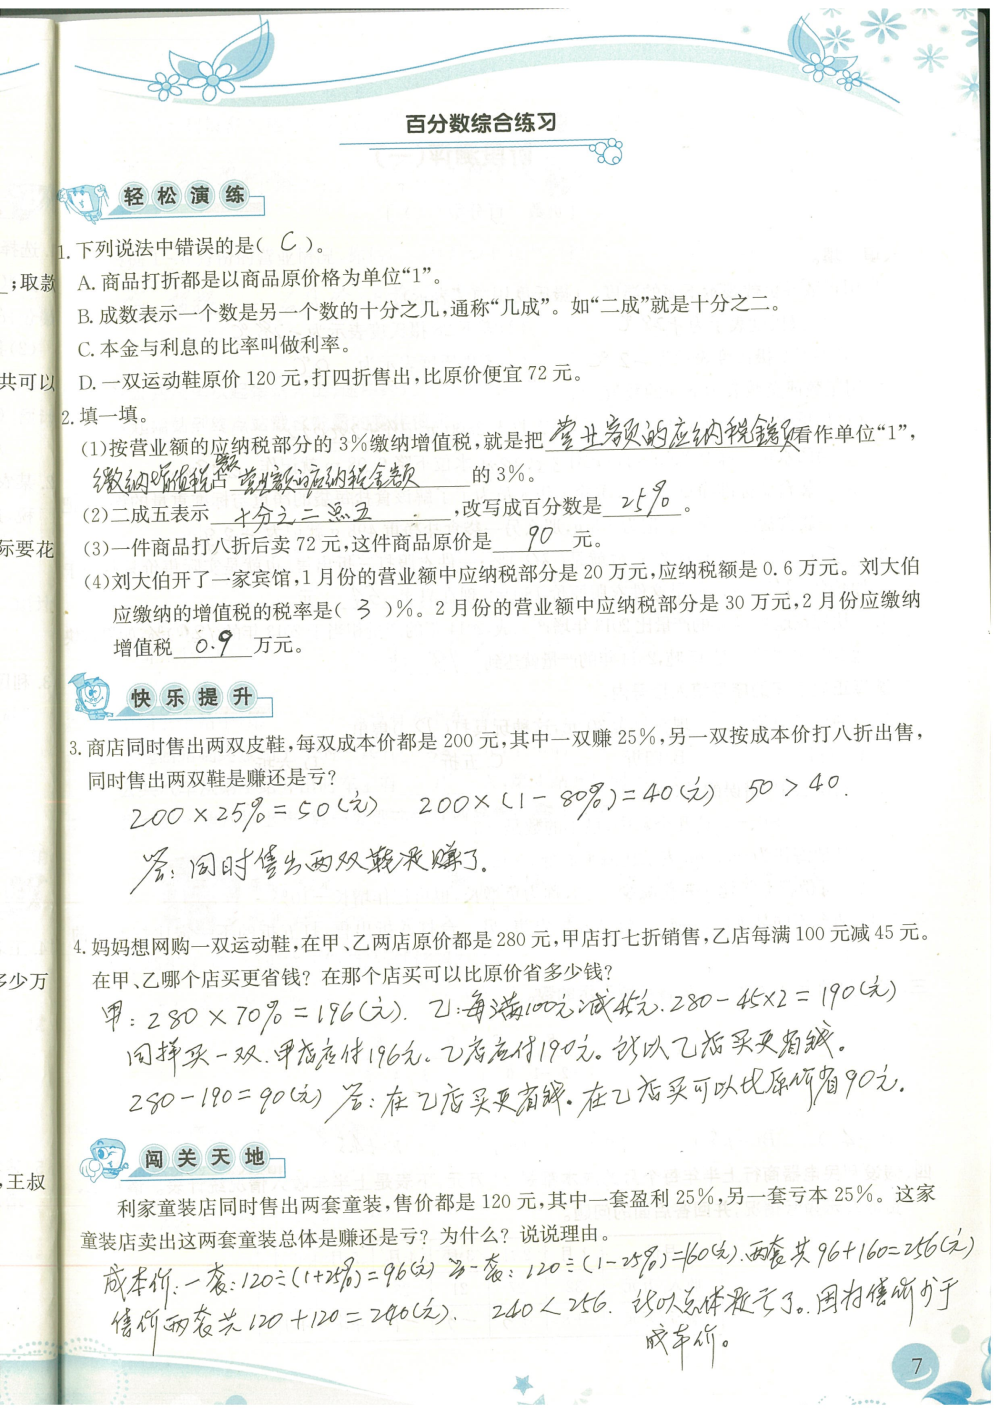 百分数综合练习
轻松演练
1.下列说法中错误的是( C )。
A.商品打折都是以商品原价格为单位“1”。
;取款
B.成数表示一个数是另一个数的十分之几,通称“几成”。如“二成”就是十分之二。
C.本金与利息的比率叫做利率。
共可以
D.一双运动鞋原价120元,打四折售出,比原价便宜72元。
2.填一填。
(1)按营业额的应纳税部分的3%缴纳增值税,就是把 营业额的应纳税金额 看作单位“1”,
缴纳增值税占营业额的应纳税金额 的3%。
(2)二成五表示 十分之二点五 ,改写成百分数是 25% 。
际要花
(3)一件商品打八折后卖72元,这件商品原价是 90 元。
(4)刘大伯开了一家宾馆,1月份的营业额中应纳税部分是20万元,应纳税额是0.6万元。刘大伯
应缴纳的增值税的税率是( 3 )%。2月份的营业额中应纳税部分是30万元,2月份应缴纳
增值税 0.9 万元。
快乐提升
3.商店同时售出两双皮鞋,每双成本价都是200元,其中一双赚25%,另一双按成本价打八折出售,
同时售出两双鞋是赚还是亏?
200×25%=50(元) 200×(1-80%)=40(元) 50>40.
答:同时售出两双鞋是赚了。
4.妈妈想网购一双运动鞋,在甲、乙两店原价都是280元,甲店打七折销售,乙店每满100元减45元。
多少万
在甲、乙哪个店买更省钱?在那个店买可以比原价省多少钱?
甲:280×70%=196(元). 乙:每满100元减45元.280-45×2=190(元)
同样买一双.甲店应付196元。乙店应付190元。所以乙店买更省钱。
280-190=90(元) 答:在乙店买更省钱。在乙店买可以比原价省90元。
闯关天地
,王叔
利家童装店同时售出两套童装,售价都是120元,其中一套盈利25%,另一套亏本25%。这家
童装店卖出这两套童装总体是赚还是亏?为什么?说说理由。
成本价:一套:120÷(1+25%)=96(元) 另一套:120÷(1-25%)=160(元).两套共96+160=256(元)
售价两套共120+120=240(元). 240<256. 所以总体是亏了.因为售价少于
成本价。
7